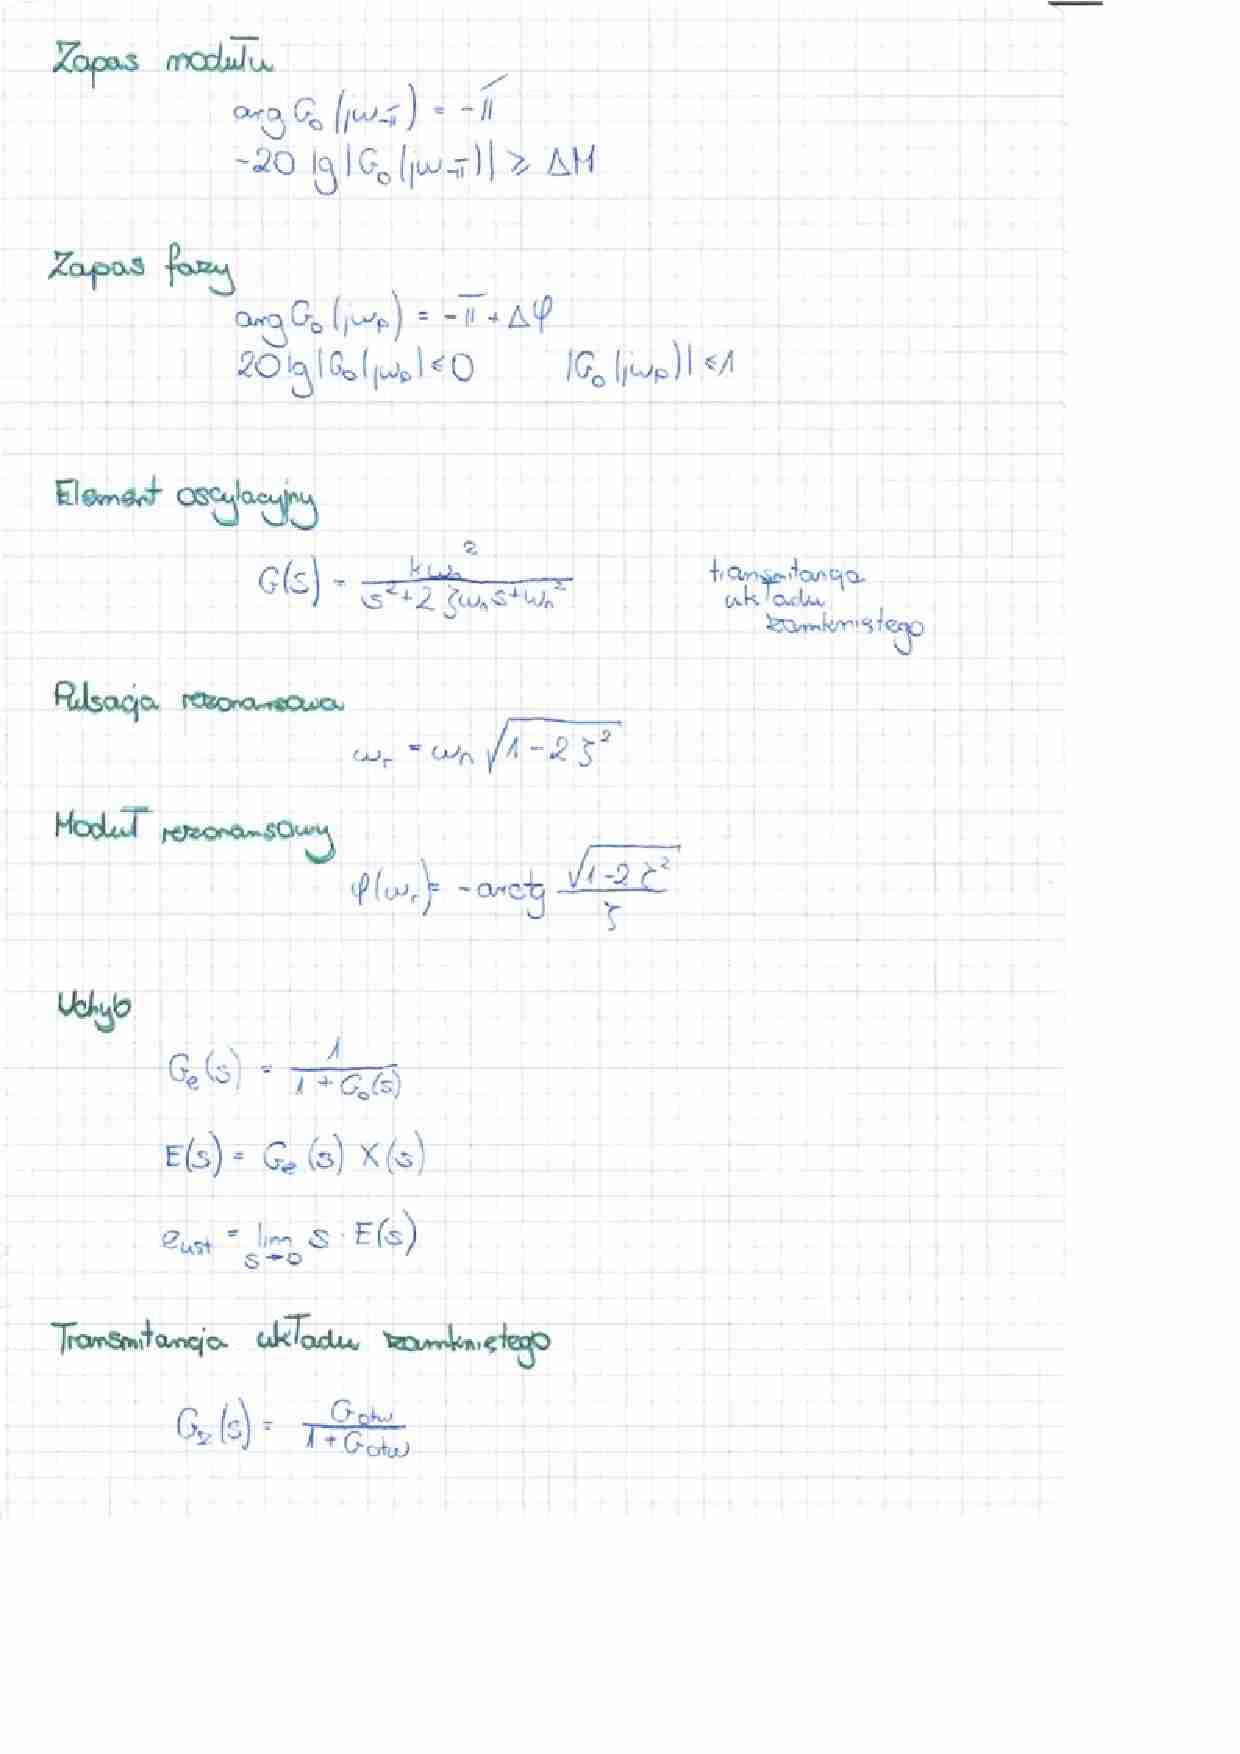 Zapas modułu
arg G₀(jω₋π) = -π
-20 lg|G₀(jω₋π)| ≥ ΔM
Zapas fazy
arg G₀(jωp) = -π + Δφ
20 lg|G₀(jωp| ≤ 0    |G₀(jωp)| ≤ 1
Element oscylacyjny
G(s) = kωn² / (s² + 2ζωn s + ωn²)
transmitancja
układu
zamkniętego
Pulsacja rezonansowa
ωr = ωn √(1 - 2ζ²)
Moduł rezonansowy
φ(ωr) = -arctg √(1-2ζ²) / ζ
Uchyb
Ge(s) = 1 / (1 + G₀(s))
E(s) = Ge(s) X(s)
eust = lim s→0 s · E(s)
Transmitancja układu zamkniętego
Gz(s) = Gotw / (1 + Gotw)